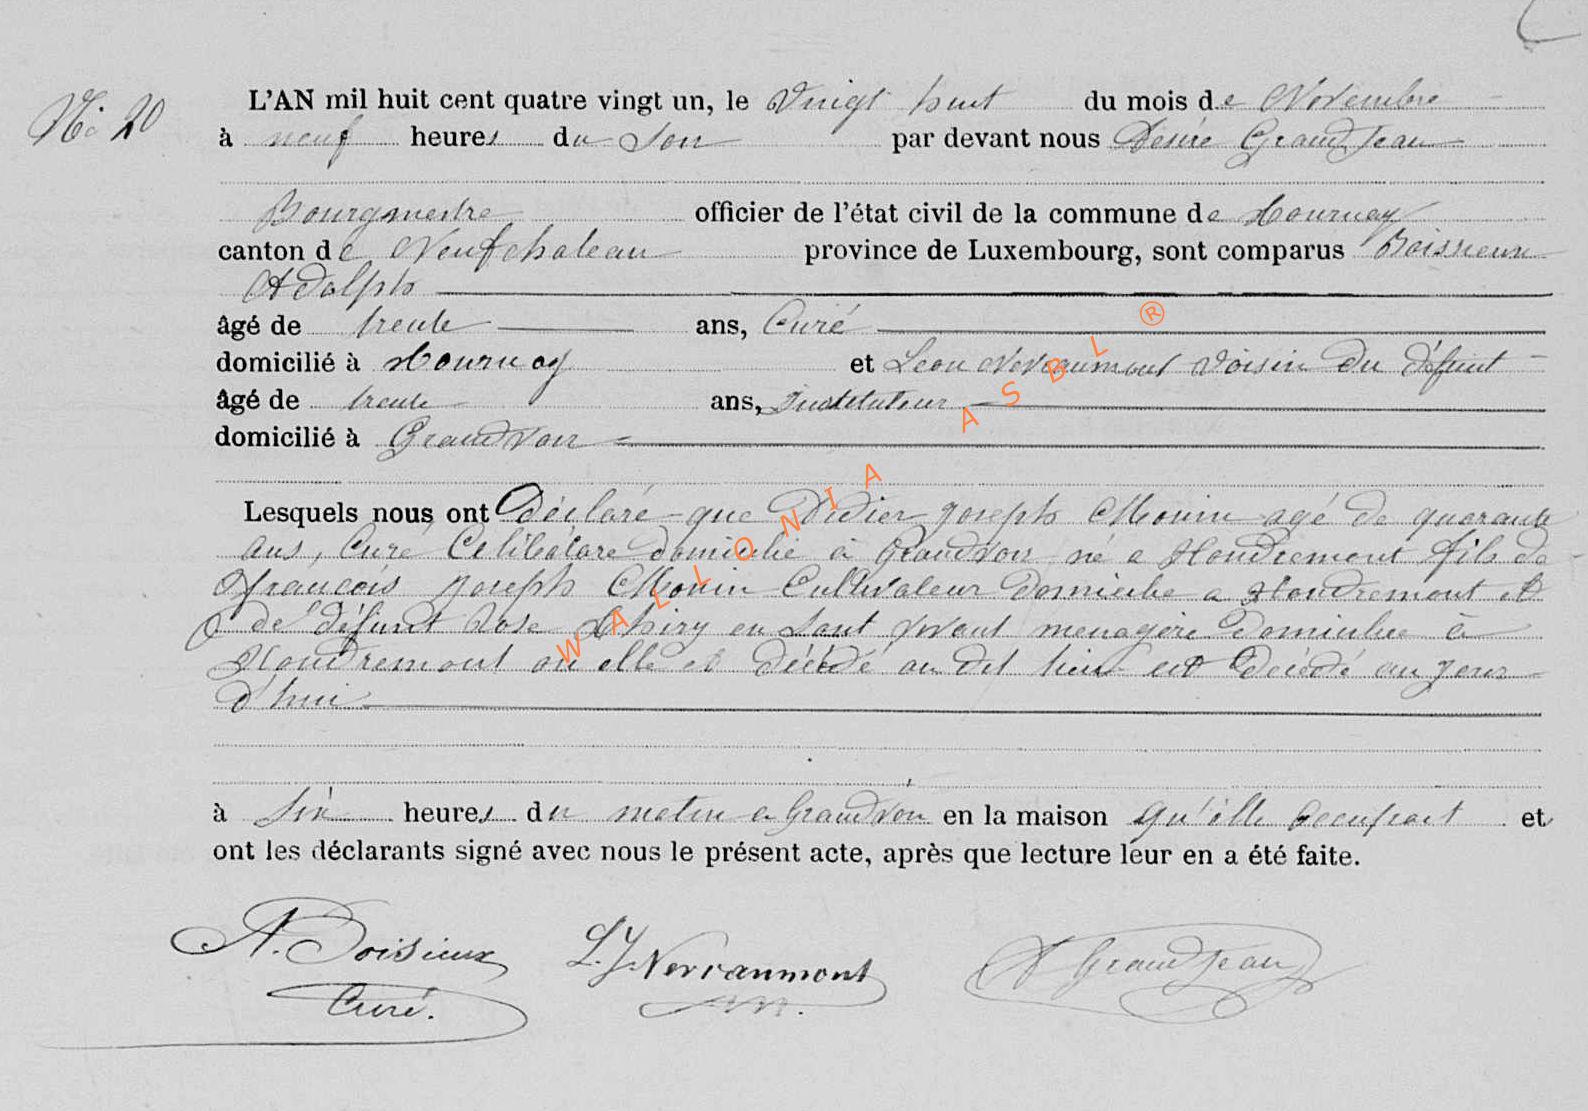 No 20
L'AN mil huit cent quatre vingt un, le Vingt huit du mois de Novembre
à neuf heures du Soir par devant nous Désiré GrandJean
Bourgmestre officier de l'état civil de la commune de Tournay
canton de Neufchateau province de Luxembourg, sont comparus
Adolph
âgé de trente ans, Curé
domicilié à Tournay et Leon Nevraumont Voisin du défunt
âgé de trente ans, Instituteur
domicilié à Grandvoir
Lesquels nous ont déclaré que Didier Joseph Monin agé de quarante
ans, Curé Celibatare domicilié à Grandvoir né a Hondremont fils de
François Joseph Monin Cultivateur domicilie a Hondremont et
de défunt Rose Thiry en Sont vivant menagère domiciliee à
Hondremont ou elle et décédé au dit lieu est décédé au jour
d'hui
à Six heures du matin a Grandvoir en la maison qu'élle occupait et
ont les déclarants signé avec nous le présent acte, après que lecture leur en a été faite.
A. Poisieux L. J. Nevraumont D GrandJean
Curé.
WALLONIA ASBL ®